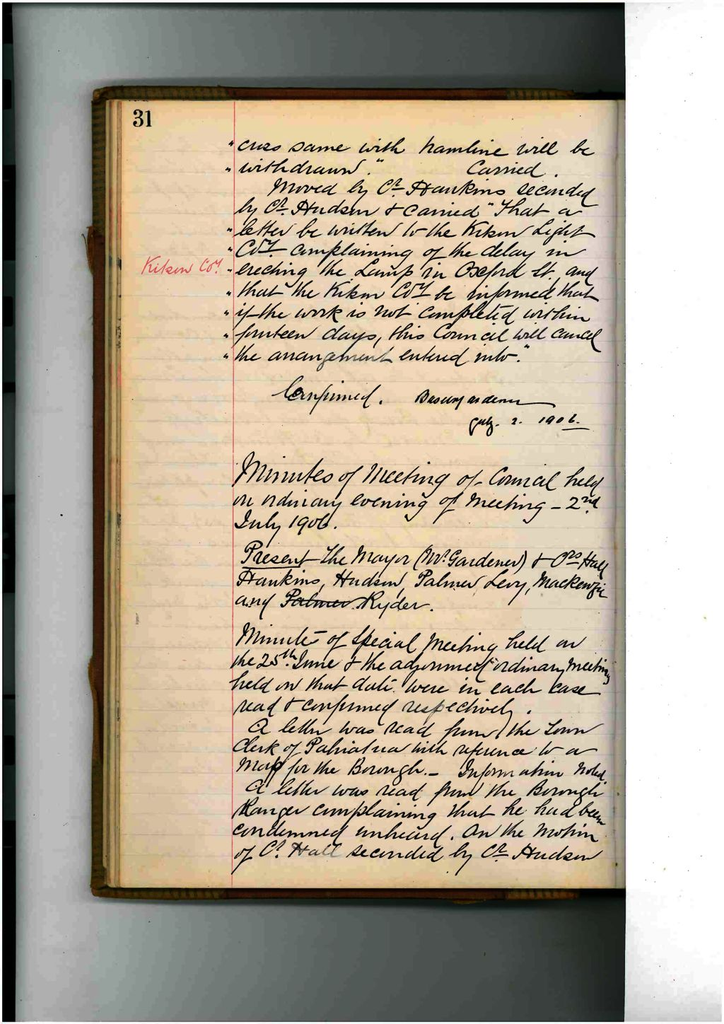 31
" cuss same with Hamline will be
" withdrawn." Carried.
Moved by Cr. Hankins seconded
by Cr. Hudson & carried "That a
" letter be written to the Kitson Light
" Coy. complaining of the delay in
Kitson Coy.
" erecting the Lamp in Oxford St, and
" that the Kitson Coy be informed that
" if the work is not completed within
" fourteen days, this Council will cancel
" the arrangement entered into."
Confirmed.
July. 2. 1906.
Minutes of Meeting of Council held
on ordinary evening of Meeting - 2nd
July 1906.
Present The Mayor (Mr. Gardener) & Crs Hall
Hankins, Hudson, Palmer, Levy, Mackenzie
and Palmer Ryder.
Minutes of Special Meeting held on
the 25th June & the adjourned ordinary Meeting
held on that date were in each case
read & confirmed respectively.
A letter was read from the Town
Clerk of Pahiatua with reference to a
Map for the Borough. - Information Noted
A letter was read from the Borough
Ranger complaining that he had been
condemned unheard. On the motion
of Cr. Hall seconded by Cr. Hudson